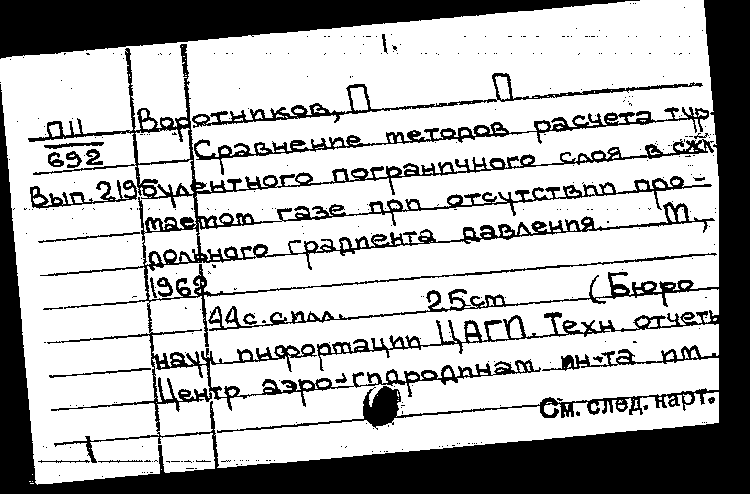 1.
П11
692
Вып. 219
Воротников, П П
Сравнение методов расчета тур-
булентного пограничного слоя в сжи-
маемом газе при отсутствии про-
дольного градиента давления. М.,
1962.
44с. с илл. 25см (Бюро
науч. информации ЦАГИ. Техн. отчеты
Центр. аэро-гидродинам. ин-та им.
См. след. карт.